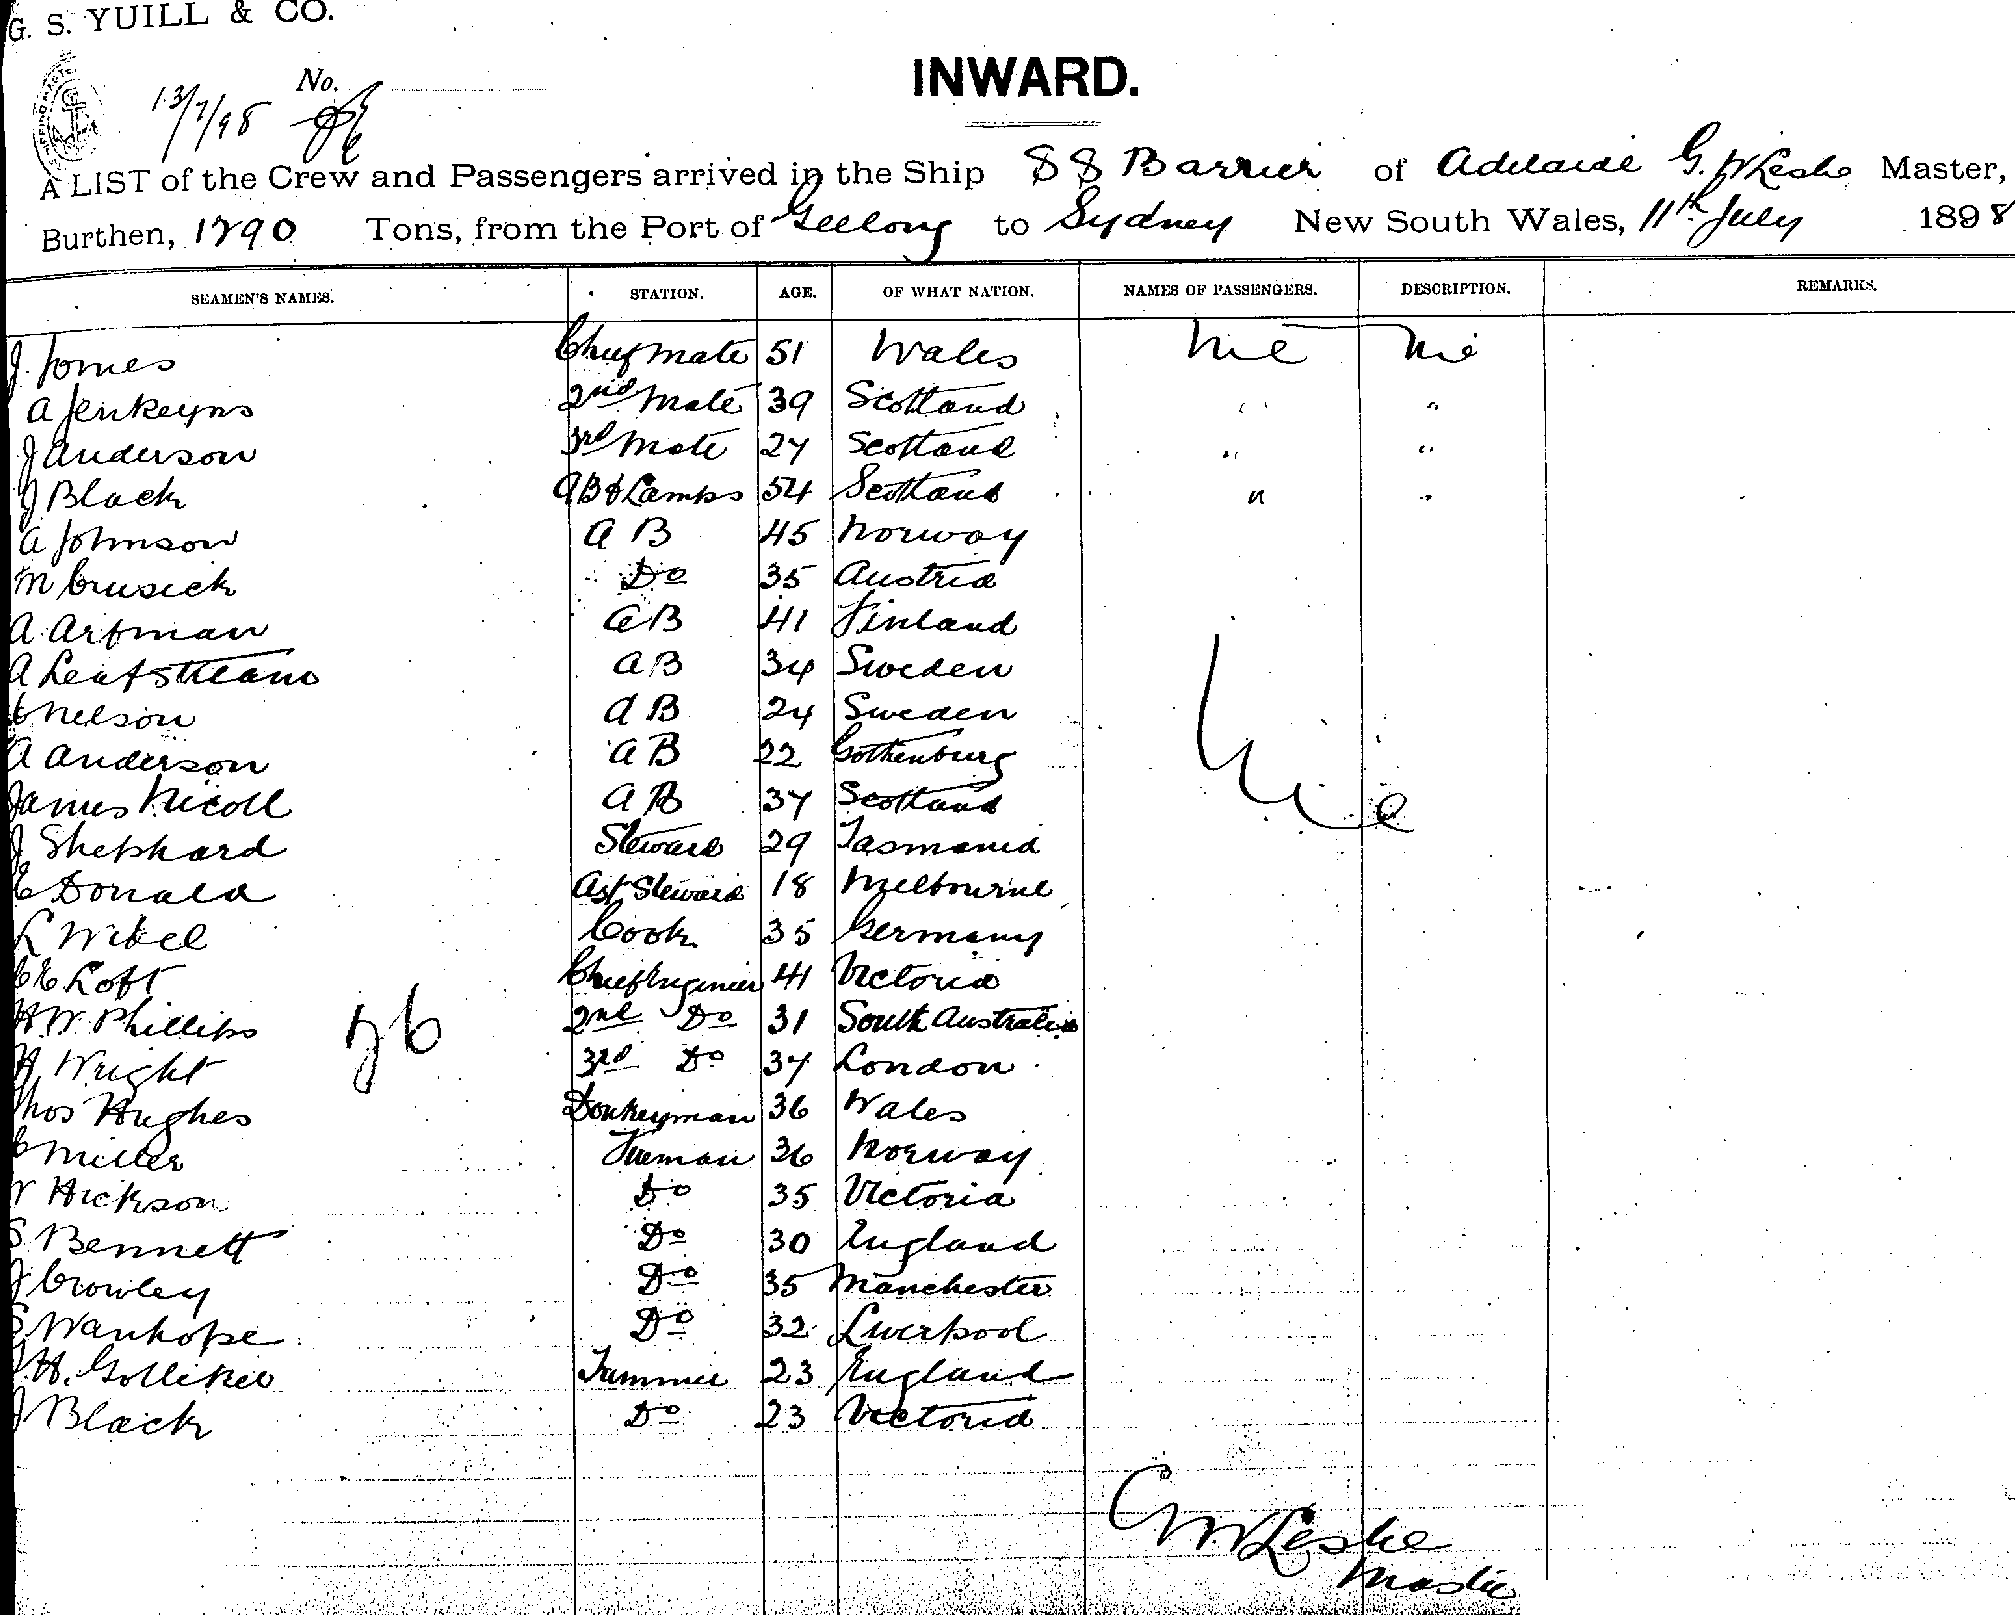 G. S. YUILL & CO.
INWARD.
13/7/98 No.
A LIST of the Crew and Passengers arrived in the Ship SS Barrier of Adelaide G. W Leslie Master,
Burthen, 1790 Tons, from the Port of Geelong to Sydney New South Wales, 11th July 1898
SEAMEN'S NAMES. STATION. AGE. OF WHAT NATION. NAMES OF PASSENGERS. DESCRIPTION. REMARKS.
J. Jones Chief mate 51 Wales Nil Nil
A Jenkeyns 2nd Mate 39 Scotland " "
J Anderson 3rd Mate 27 Scotland " "
J Black AB & Lamps 54 Scotland " "
A Johnson A B 45 Norway
M Cusick Do 35 Austria
A. Artman AB 41 Finland
A Leafstream AB 34 Sweden
C Nelson A B 24 Sweden
A Anderson A B 22 Gothenburg
James Nicoll A B 37 Scotland Nil
J Shephard Steward 29 Tasmania
C Donald Ast Steward 18 Melbourne
L Wibel Cook 35 Germany
C E Loft Chief Engineer 41 Victoria
H. W. Phillips 2nd Do 31 South Australia
H Wright 3rd Do 37 London
26
Thos Hughes Donkeyman 36 Wales
C Miller Fireman 36 Norway
W Hickson Do 35 Victoria
S. Bennett Do 30 England
J Crowley Do 35 Manchester
S Wanhope Do 32 Liverpool
J. H. Golliker Trimmer 23 England
J Black Do 23 Victoria
G W Leslie
Master